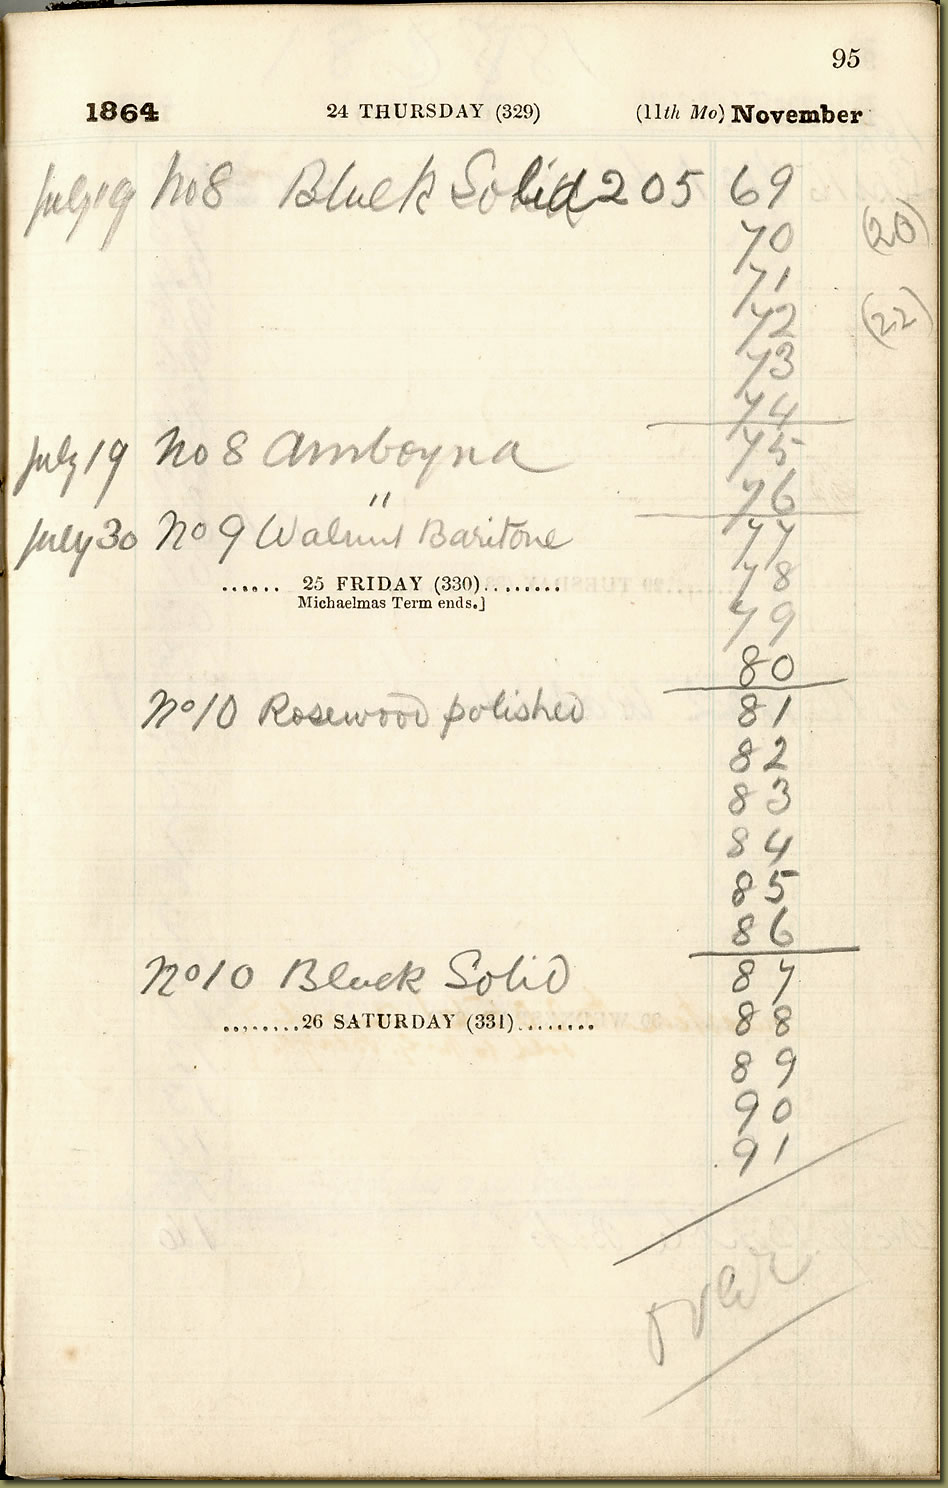 95
1864 24 THURSDAY (329) (11th Mo) November
July 19 No 8 Black Solid 205 69
70 (20)
71
72 (22)
73
74
July 19 No 8 Amboyna 75
" 76
July 30 No 9 Walnut Baritone 77
...... 25 FRIDAY (330)......... 78
Michaelmas Term ends.]
79
80
No 10 Rosewood polished 81
82
83
84
85
86
No 10 Black Solid 87
.........26 SATURDAY (331)......... 88
89
90
91
over